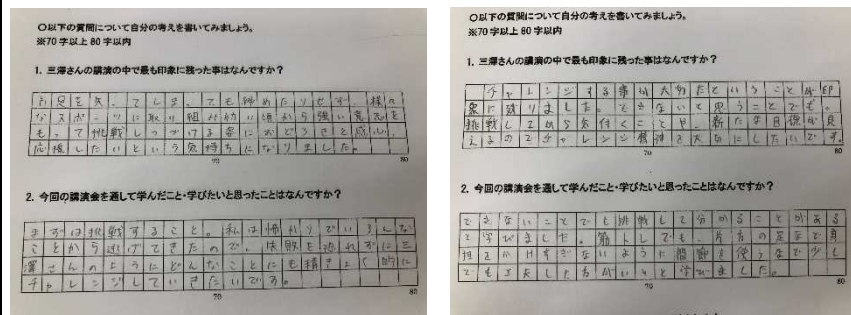 〇以下の質問について自分の考えを書いてみましょう。
※70字以上80字以内
1. 三澤さんの講演の中で最も印象に残った事はなんですか？
お足を失ってしまっても諦めたりせず、様々
なスポーツに取り組み幼い頃から強い意志を
もって挑戦しつづける姿におどろきと感心、
応援したいという気持ちになりました。
70
80
2. 今回の講演会を通して学んだこと・学びたいと思ったことはなんですか？
まずは挑戦すること。私は怖がりでいろんな
ことから逃げてきたので、失敗を恐れずに三
澤さんのようにどんなことにも積きょく的に
チャレンジしていきたいです。
70
80
〇以下の質問について自分の考えを書いてみましょう。
※70字以上80字以内
1. 三澤さんの講演の中で最も印象に残った事はなんですか？
チャレンジする事が大切だということが印
象に残りました。できないと思うことでも、
挑戦してから気付くことや、新たな目標が見
えるのでチャレンジ精神を大切にしたいです。
70
80
2. 今回の講演会を通して学んだこと・学びたいと思ったことはなんですか？
できないことでも挑戦して分かることがある
と学びました。筋トレでも、片方の足まで負
担をかけすぎないように関節を使うなど少し
でも工夫した方がいいと学びました。
70
80